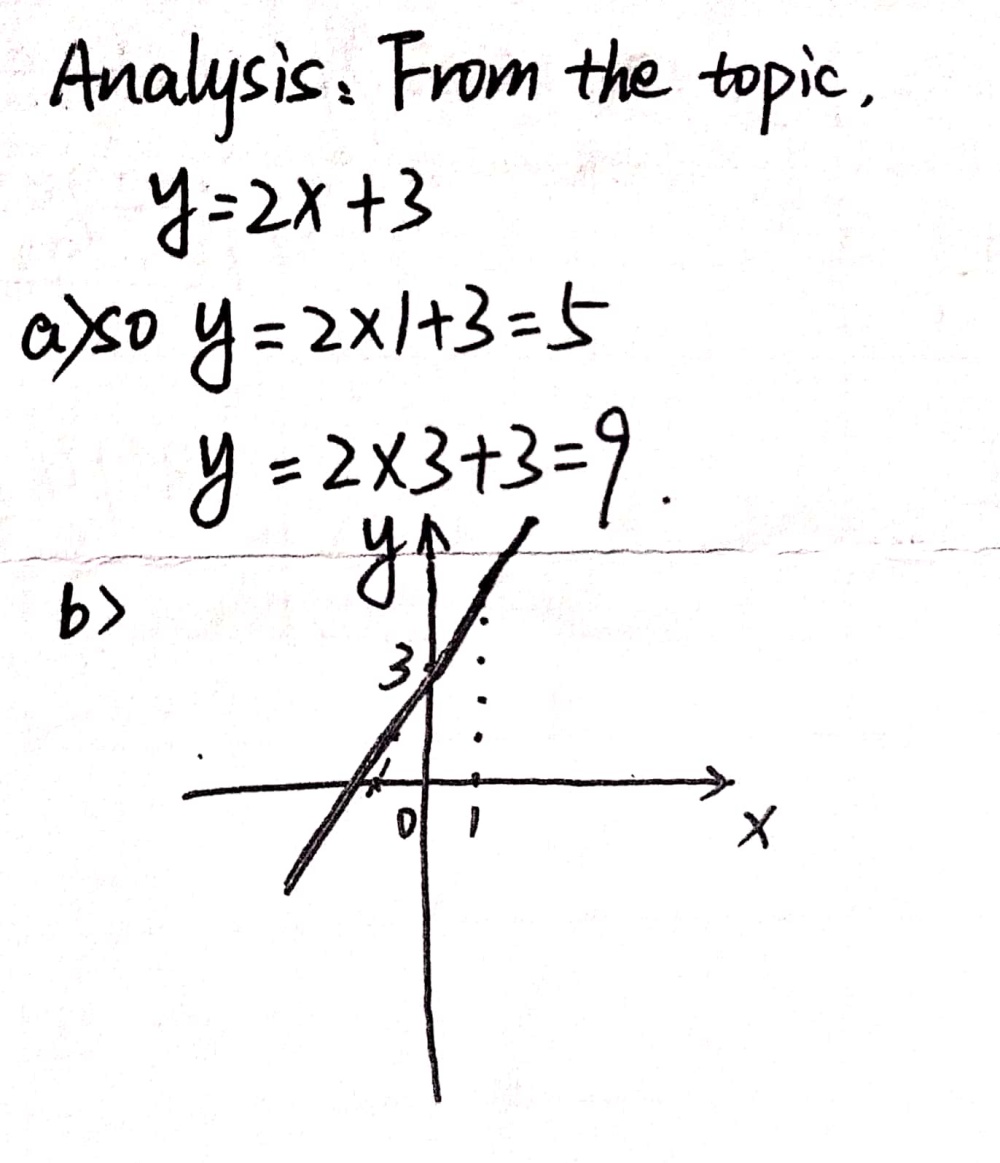 Analysis: From the topic,
y=2x+3
a>so y=2×1+3=5
y=2×3+3=9.
y
b>
3
0 1
x